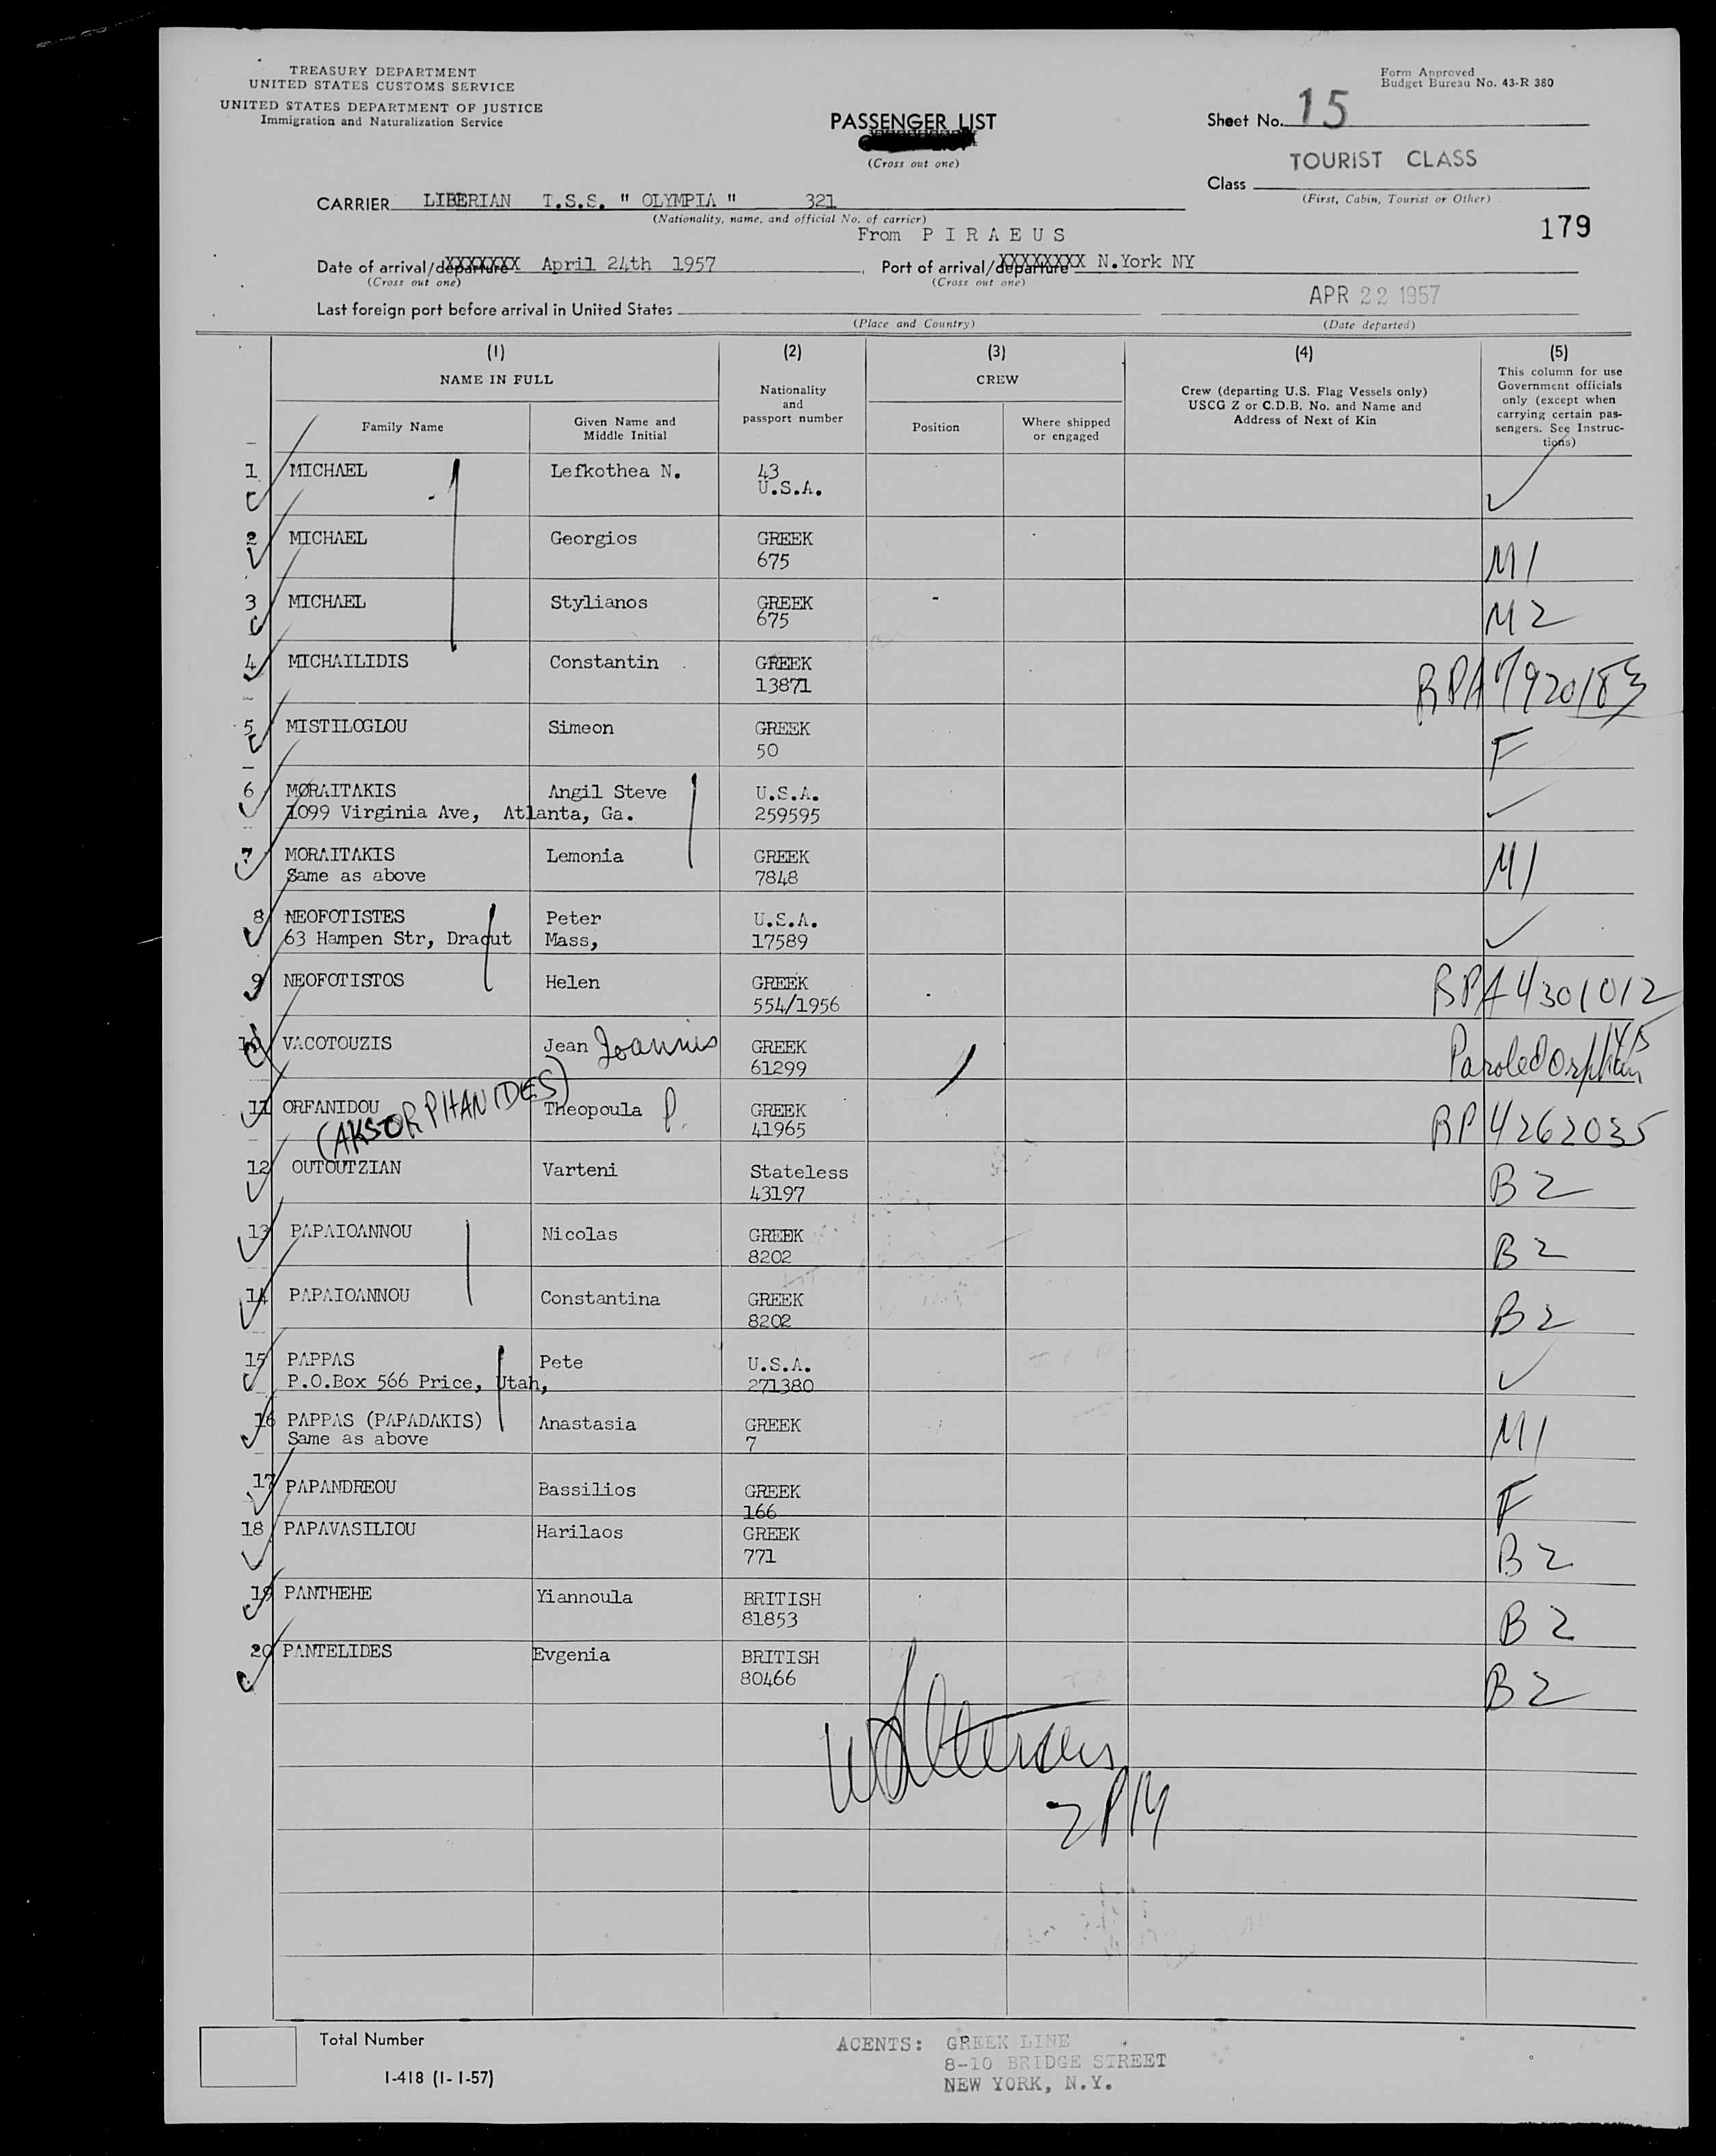 TREASURY DEPARTMENT
UNITED STATES CUSTOMS SERVICE
UNITED STATES DEPARTMENT OF JUSTICE
Immigration and Naturalization Service
Form Approved
Budget Bureau No. 43-R 380
PASSENGER LIST
(Cross out one)
Sheet No. 15
TOURIST CLASS
Class
(First, Cabin, Tourist or Other)
CARRIER LIBERIAN T.S.S. " OLYMPIA " 321
(Nationality, name, and official No. of carrier)
179
From PIRAEUS
Date of arrival/departure XXXXXXX April 24th 1957, Port of arrival/departure XXXXXXXX N.York NY
(Cross out one) (Cross out one)
APR 22 1957
Last foreign port before arrival in United States
(Place and Country) (Date departed)
(1) (2) (3) (4) (5)
NAME IN FULL
Family Name
Given Name and Middle Initial
Nationality and passport number
CREW
Position
Where shipped or engaged
Crew (departing U.S. Flag Vessels only)
USCG Z or C.D.B. No. and Name and
Address of Next of Kin
This column for use
Government officials
only (except when
carrying certain pas-
sengers. See Instruc-
tions)
1 MICHAEL Lefkothea N. 43
U.S.A.
2 MICHAEL Georgios GREEK
675 M1
3 MICHAEL Stylianos GREEK
675 M2
4 MICHAILIDIS Constantin GREEK
13871
5 MISTILOGLOU Simeon GREEK
50 F
6 MORAITAKIS Angil Steve U.S.A.
1099 Virginia Ave, Atlanta, Ga. 259595
7 MORAITAKIS Lemonia GREEK
Same as above 7848 M1
8 NEOFOTISTES Peter U.S.A.
63 Hampen Str, Dracut Mass, 17589
9 NEOFOTISTOS Helen GREEK
554/1956 RPA 4301012
10 VACOTOUZIS Jean Joannis GREEK
61299 Paroled Orphan
11 ORFANIDOU Theopoula P. GREEK
(AKS ORPHANIDES) 41965 RP 4262035
12 OUTOUTZIAN Varteni Stateless
43197 B2
13 PAPAIOANNOU Nicolas GREEK
8202 B2
14 PAPAIOANNOU Constantina GREEK
8202 B2
15 PAPPAS Pete U.S.A.
P.O.Box 566 Price, Utah, 271380
16 PAPPAS (PAPADAKIS) Anastasia GREEK
Same as above 7 M1
17 PAPANDREOU Bassilios GREEK
166 F
18 PAPAVASILIOU Harilaos GREEK
771 B2
19 PANTHEHE Yiannoula BRITISH
81853 B2
20 PANTELIDES Evgenia BRITISH
80466 B2
2PM
Total Number
I-418 (1-1-57)
AGENTS: GREEK LINE
8-10 BRIDGE STREET
NEW YORK, N.Y.